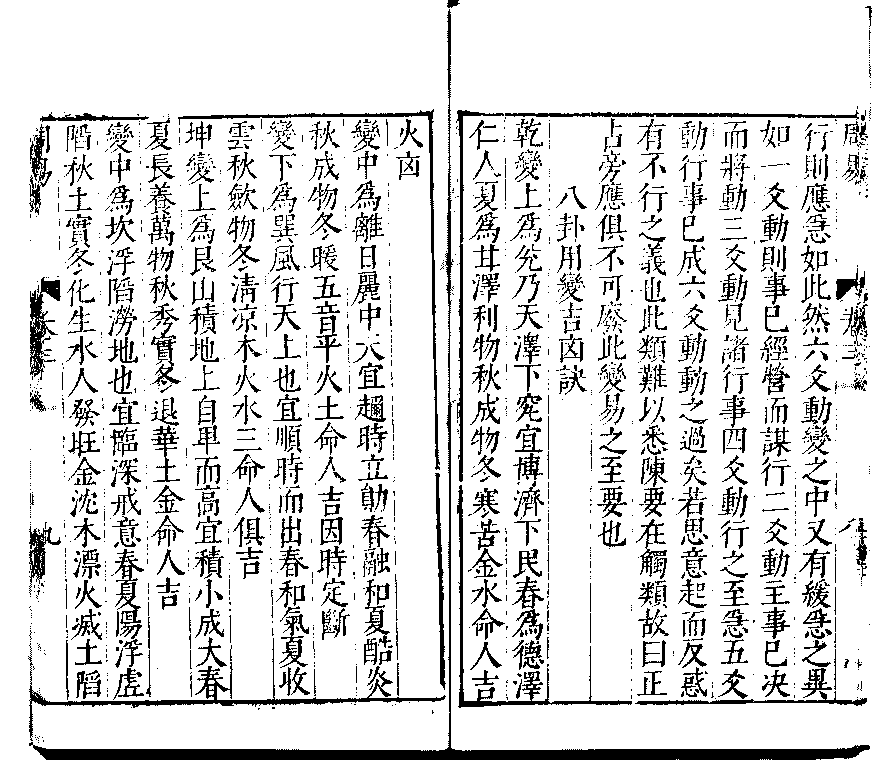 周易 卷三 八
行則應急如此然六爻動變之中又有緩急之異
如一爻動則事已經營而謀行二爻動主事已决
而將動三爻動見諸行事四爻動行之至急五爻
動行事已成六爻動動之過矣若思意起而反惑
有不行之義也此類難以悉陳要在觸類故曰正
占旁應俱不可廢此變易之至要也
八卦用變吉凶訣
乾變上爲兊乃天澤下宂宜博濟下民春爲德澤
仁人夏爲甘澤利物秋成物冬寒苦金水命人吉
火凶
變中爲離日麗中天宜趨時立勛春融和夏酷炎
秋成物冬暖五音平火土命人吉因時定斷
變下爲巽風行天上也宜順時而出春和氣夏收
雲秋歛物冬淸凉木火水三命人俱吉
坤變上爲艮山積地上自卑而高宜積小成大春
夏長養萬物秋秀實冬退華土金命人吉
變中爲坎浮䧟澇地也宜臨深戒意春夏陽浮虛
䧟秋土實冬化生水人發旺金沈木漂火烕土䧟
周易 卷三 九